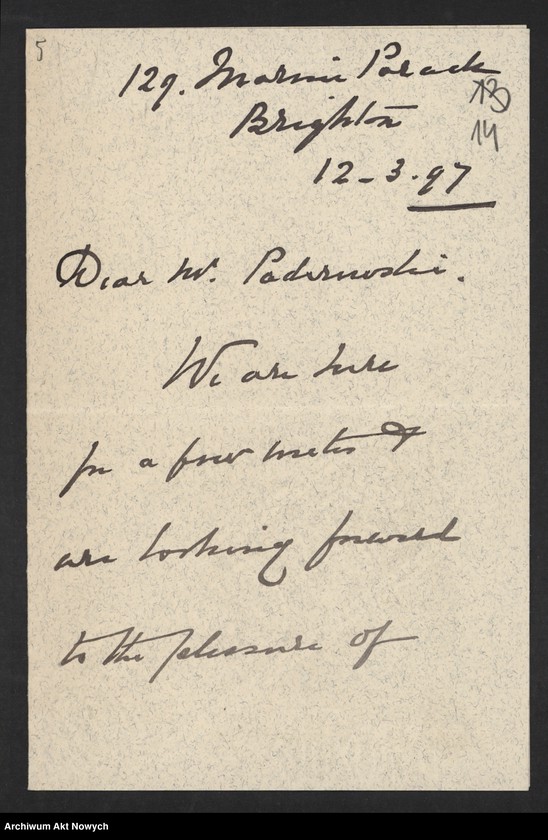 5
129. Marine Parade
13
Brighton
14
12-3.97
Dear Mr. Paderewski.
We are here
for a few weeks &
are looking forward
to the pleasure of
Archiwum Akt Nowych